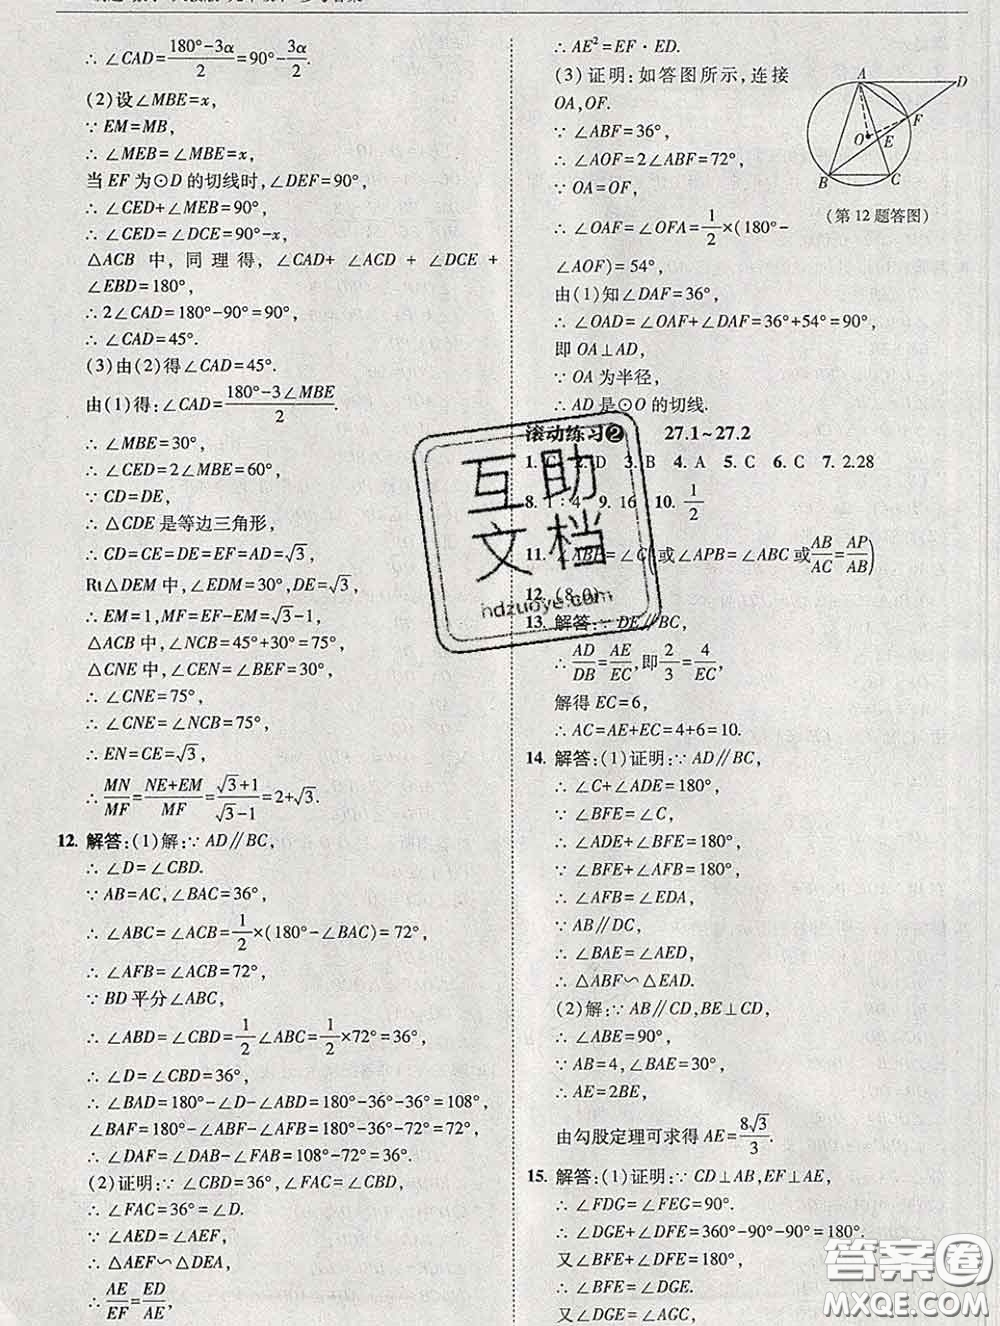 ∴ ∠CAD=(180°-3α)/2=90°-3α/2.
(2)设∠MBE=x,
∵ EM=MB,
∴ ∠MEB=∠MBE=x,
当 EF 为⊙D 的切线时,∠DEF=90°,
∴ ∠CED+∠MEB=90°,
∴ ∠CED=∠DCE=90°-x,
△ACB 中, 同 理 得, ∠CAD+ ∠ACD + ∠DCE +
∠EBD=180°,
∴ 2∠CAD=180°-90°=90°,
∴ ∠CAD=45°.
(3)由(2)得∠CAD=45°.
由(1)得:∠CAD=(180°-3∠MBE)/2.
∴ ∠MBE=30°,
∴ ∠CED=2∠MBE=60°,
∵ CD=DE,
∴ △CDE 是等边三角形,
∴ CD=CE=DE=EF=AD=√3,
Rt△DEM 中,∠EDM=30°,DE=√3,
∴ EM=1,MF=EF-EM=√3-1,
△ACB 中,∠NCB=45°+30°=75°,
△CNE 中,∠CEN=∠BEF=30°,
∴ ∠CNE=75°,
∴ ∠CNE=∠NCB=75°,
∴ EN=CE=√3,
∴ MN/MF=(NE+EM)/MF=(√3+1)/(√3-1)=2+√3.
12. 解答:(1)解:∵ AD∥BC,
∴ ∠D=∠CBD.
∵ AB=AC,∠BAC=36°,
∴ ∠ABC=∠ACB=1/2×(180°-∠BAC)=72°,
∴ ∠AFB=∠ACB=72°,
∵ BD 平分∠ABC,
∴ ∠ABD=∠CBD=1/2∠ABC=1/2×72°=36°,
∴ ∠D=∠CBD=36°,
∴ ∠BAD=180°-∠D-∠ABD=180°-36°-36°=108°,
∠BAF=180°-∠ABF-∠AFB=180°-36°-72°=72°,
∴ ∠DAF=∠DAB-∠FAB=108°-72°=36°.
(2)证明:∵ ∠CBD=36°,∠FAC=∠CBD,
∴ ∠FAC=36°=∠D.
∵ ∠AED=∠AEF,
∴ △AEF∽△DEA,
∴ AE/EF=ED/AE,
∴ AE²=EF·ED.
(3)证明:如答图所示,连接
OA,OF.
∵ ∠ABF=36°,
∴ ∠AOF=2∠ABF=72°,
∵ OA=OF,
∴ ∠OAF=∠OFA=1/2×(180°-
∠AOF)=54°,
由(1)知∠DAF=36°,
∴ ∠OAD=∠OAF+∠DAF=36°+54°=90°,
即 OA⊥AD,
∵ OA 为半径,
∴ AD 是⊙O 的切线.
A
D
F
O
E
B
C
(第 12 题答图)
滚动练习❷ 27.1~27.2
1. C 2. D 3. B 4. A 5. C 6. C 7. 2.28
8. 1∶4 9. 16 10. 1/2
11. ∠ABP=∠C(或∠APB=∠ABC 或AB/AC=AP/AB)
12. (8,0)
13. 解答:∵ DE∥BC,
∴ AD/DB=AE/EC,即2/3=4/EC,
解得 EC=6,
∴ AC=AE+EC=4+6=10.
14. 解答:(1)证明:∵ AD∥BC,
∴ ∠C+∠ADE=180°,
∵ ∠BFE=∠C,
∴ ∠ADE+∠BFE=180°,
∵ ∠BFE+∠AFB=180°,
∴ ∠AFB=∠EDA,
∵ AB∥DC,
∴ ∠BAE=∠AED,
∴ △ABF∽△EAD.
(2)解:∵ AB∥CD,BE⊥CD,
∴ ∠ABE=90°,
∵ AB=4,∠BAE=30°,
∴ AE=2BE,
由勾股定理可求得 AE=8√3/3.
15. 解答:(1)证明:∵ CD⊥AB,EF⊥AE,
∴ ∠FDG=∠FEG=90°.
∴ ∠DGE+∠DFE=360°-90°-90°=180°.
又∠BFE+∠DFE=180°,
∴ ∠BFE=∠DGE.
又∠DGE=∠AGC,
互助
文档
hdzuoye.com
答案圈
MXQE.COM